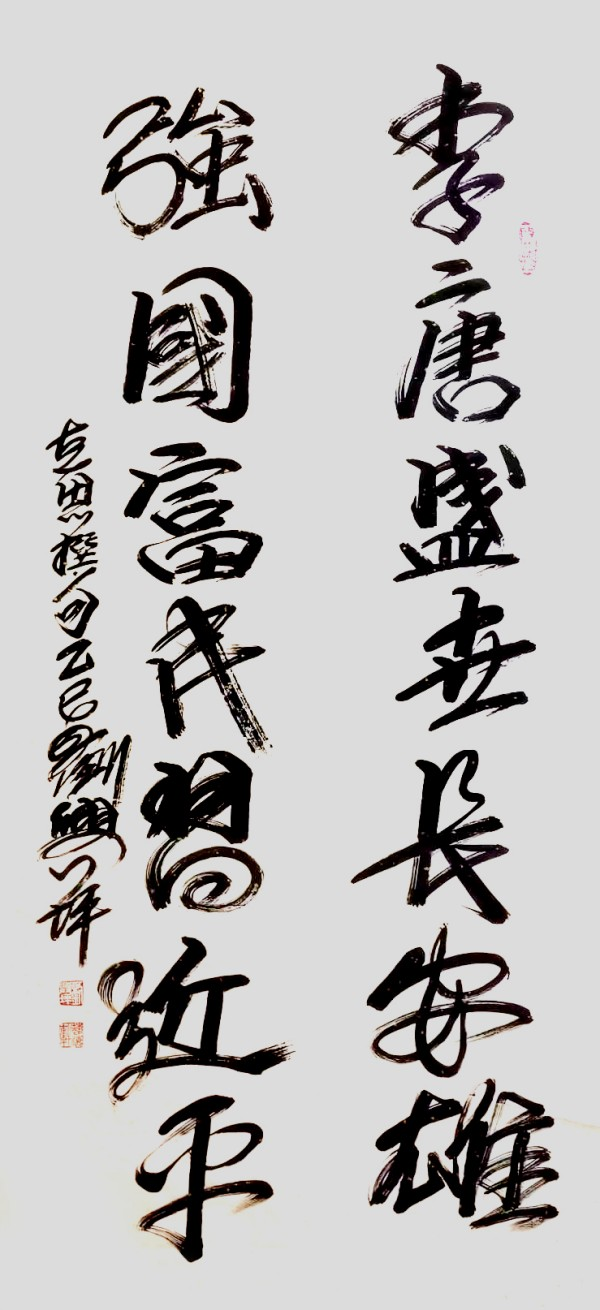 李唐盛世長安雄
強國富民習近平
左思撰句乙巳劉興祥